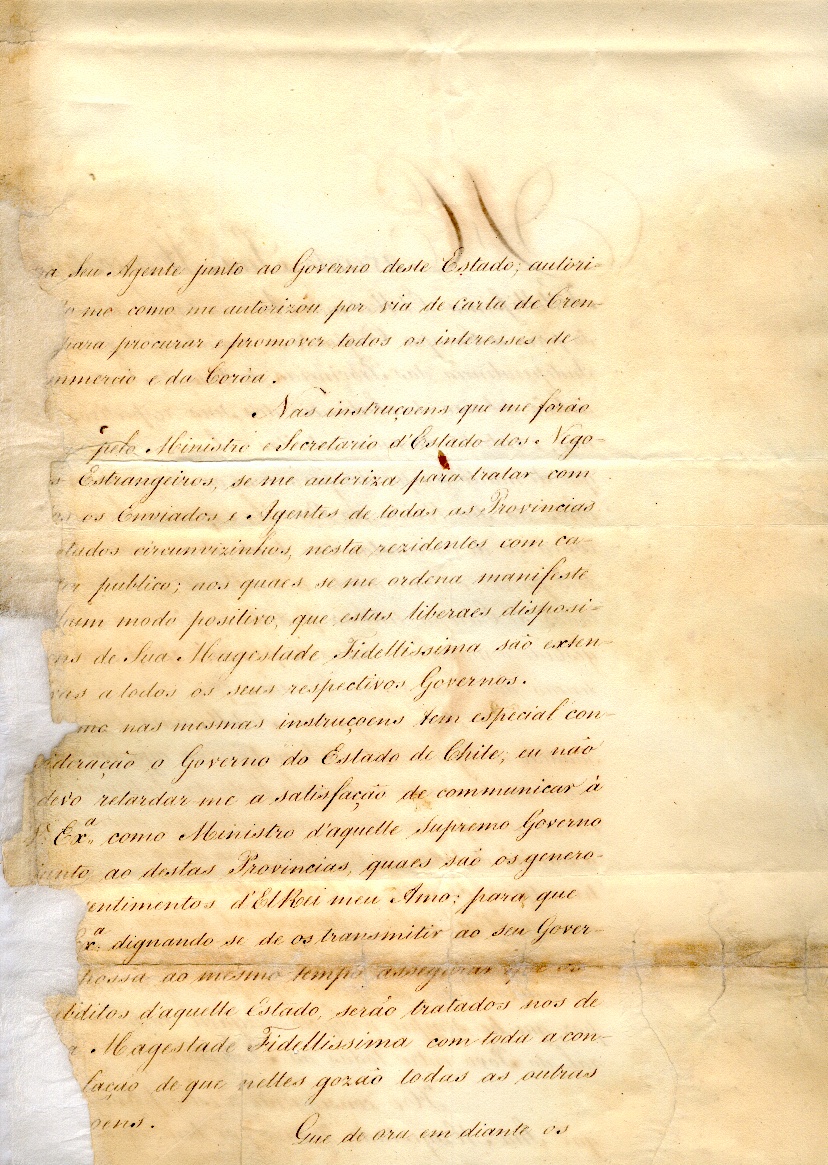 a Seu Agente junto ao Governo deste Estado; autori-
me como me autorizou por via de carta de Cren-
para procurar e promover todos os interesses de
mmercio e da Corôa.
Nas instruçoens que me forão
pelo Ministro e Secretario d'Estado dos Nego-
Estrangeiros, se me autoriza para tratar com
os os Enviados e Agentes de todas as Provincias
tados circunvizinhos, nesta rezidentes com ca-
er publico; aos quaes se me ordena manifeste
hum modo positivo, que estas liberaes disposi-
ns de Sua Magestade Fidellissima são exten-
vas a todos os seus respectivos Governos.
mo nas mesmas instruçoens tem especial con-
sideração o Governo do Estado de Chile; eu não
devo retardar me a satisfação de communicar à
V. Exª. como Ministro d'aquelle Supremo Governo
junto ao destas Provincias, quaes são os genero-
entimentos d'ElRei meu Amo; para que
Exª. dignando se de os transmitir ao seu Gover-
possa ao mesmo tempo assegurar que os
bditos d'aquelle Estado, serão tratados nos de
a Magestade Fidellissima com toda a con-
lação de que nelles gozão todas as outras
oens.
Que de ora em diante os